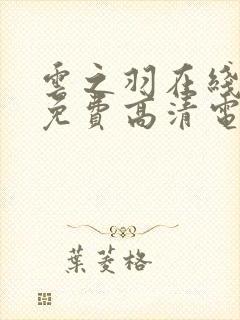 雲之羽在綫
免費高清電
葉菱格